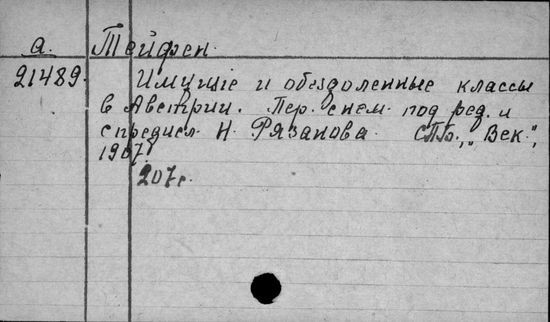 а. Тейфен.
21489. Имущіе и обездоленные классы
в Австрии. Пер. с нем. под ред. и
с предисл. Н. Рязанова. СПБ., „Век",
1907.
207 с.